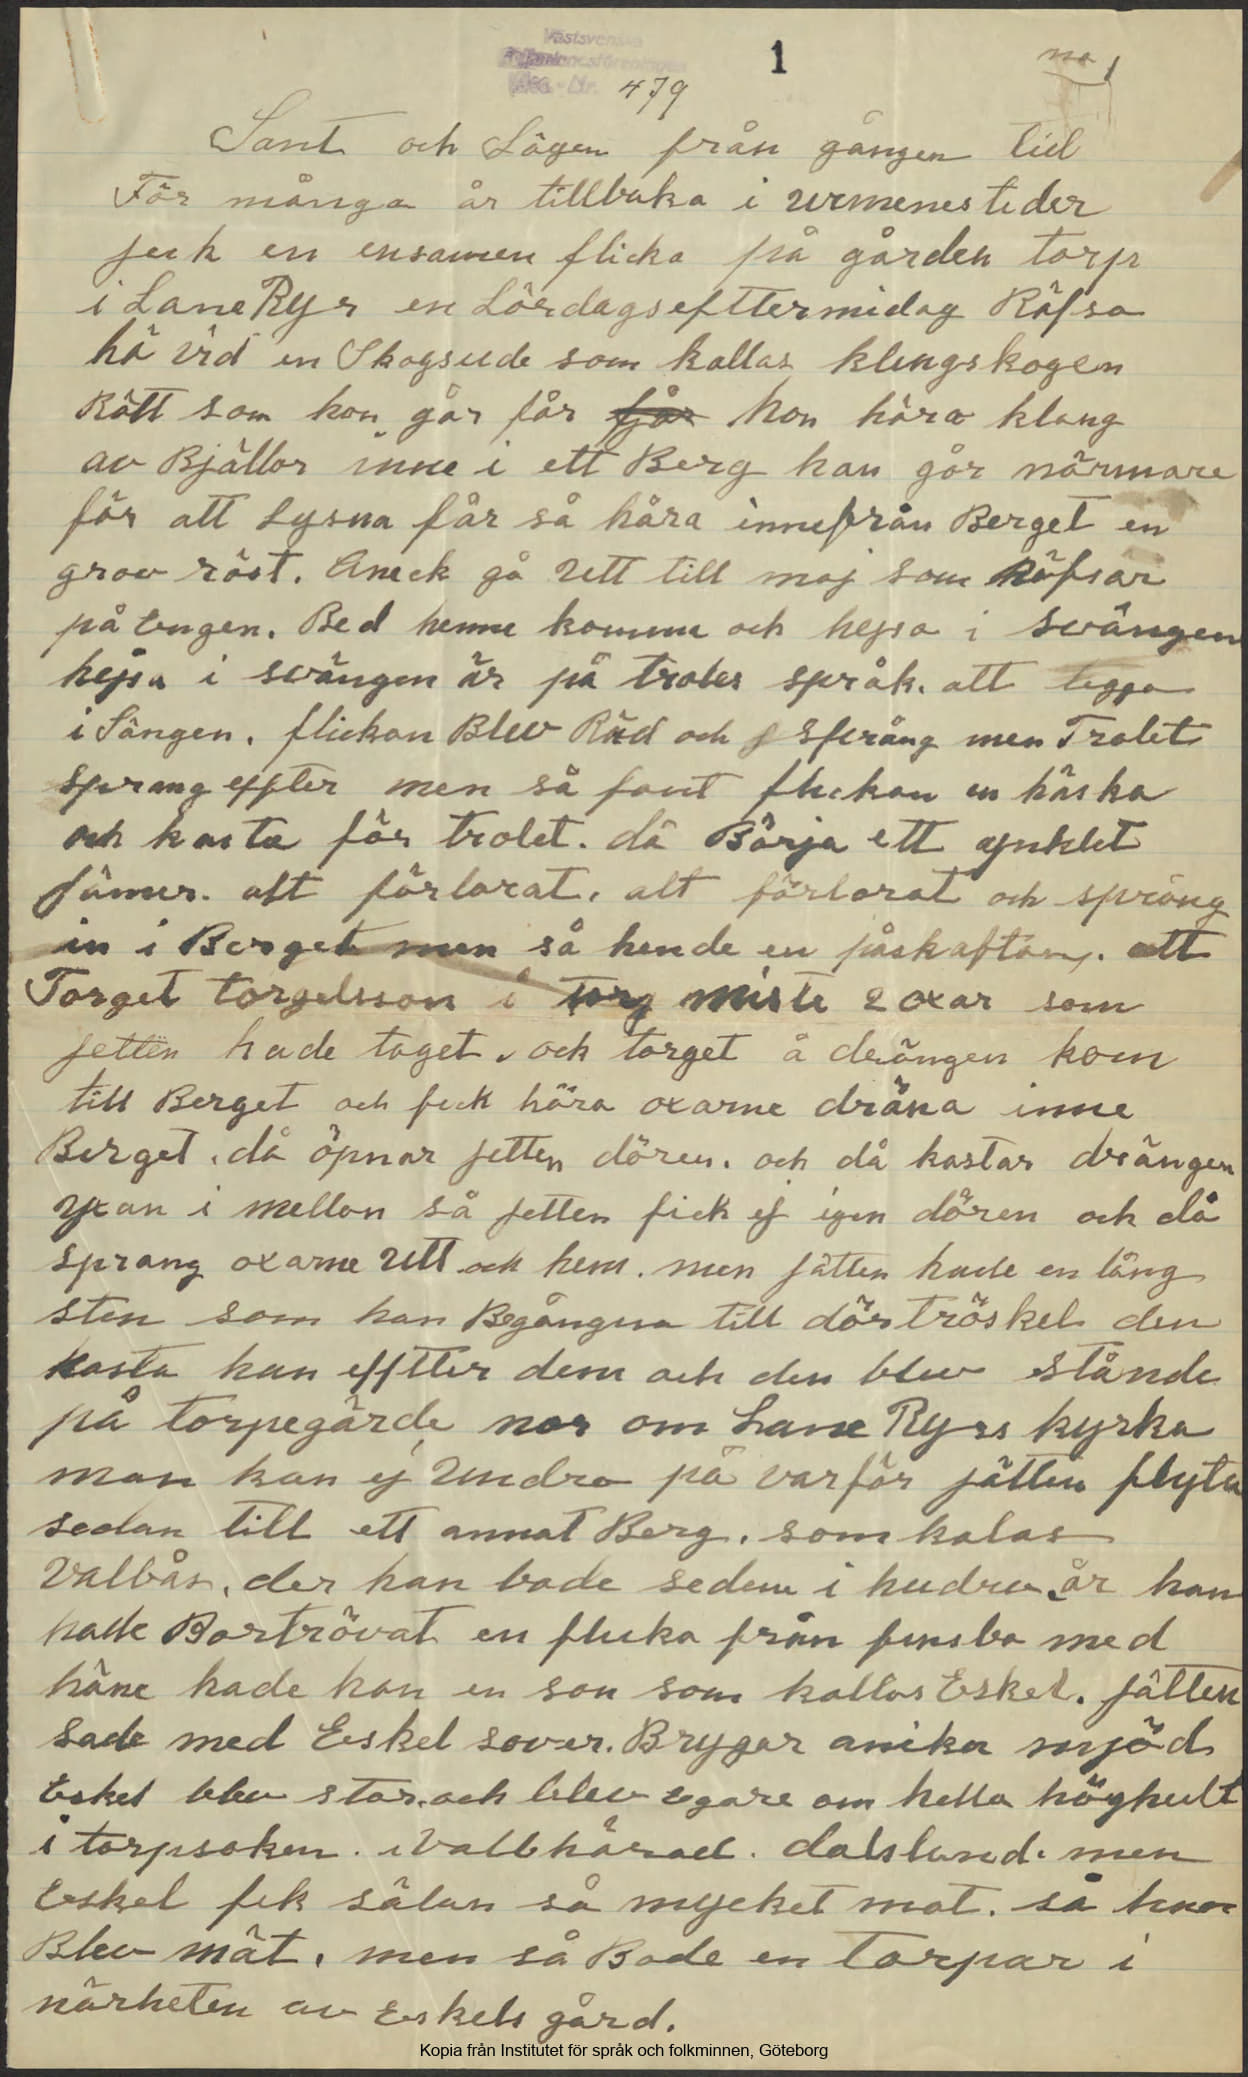 Västsvenska
Folkminnesföreningen
Acc. Nr. 479
1
Sant och Sägen från gången tid
För många år tillbaka i urmenestider
jeck en ensamen flicka på gården torp
i Lane Ryr en Lördagsefttermidag Räfsa
hö vid en Skogsude som kallas klengskogen
Rätt som hon går får får hon höra klang
av Bjällor inne i ett Berg han går närmare
för att Lysna får så håra innefrån Berget en
grov röst. Aneck gå Utt till moj som Räfsar
på Engen. Bed henne komma och hejsa i svängen
hejsa i svängen är på troles språk. att legga
i Sängen. flickan Blev Räd och språng men Trolet
sprang effter men så fant flickan en häska
och kasta för trolet. då Börja ett ynklet
jämer. alt förlorat. alt förlorat och språng
in i Berget men så hende en påskaftong. att
Torget torgelsson i torg miste 2 oxar som
jetten hade toget. och torget å drängen kom
till Berget och feck höra oxarne dräna inne
Berget. då öpnar jetten dören. och då kastar drängen
yxan i mellon så jetten fick ej igen dören och då
sprang oxarne Utt och hem. men jätten hade en lång
sten som han Begångna till dörtröskel den
kasta han efftter dem och den blev stånde
på torpegärde nor om Lane Ryrs kyrka
man kan ej Undra på varför jätten flyta
sedan till ett annat Berg. som kalas
Valbås. der han bode sedem i hudra år han
hade Bortrövat en flicka från finsbo med
häne hade han en son som kallas Eskel. jätten
sade med Eskel sover. Brygar anika mjöd
Eskel blev stor. och blev egare om hella höghult
i torpsoken. i Valbhärad. dalsland. men
Eskel fek sälan så mycket mat. så han
Blev mät. men så Bode en torpar i
närheten av Eskels gård.
Kopia från Institutet för språk och folkminnen, Göteborg